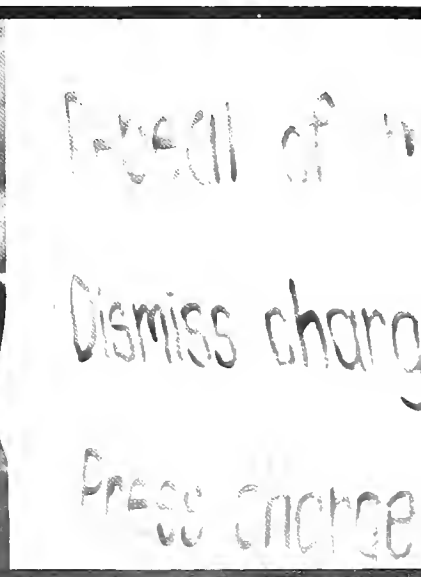 Repeal of
Dismiss charg
Press charge